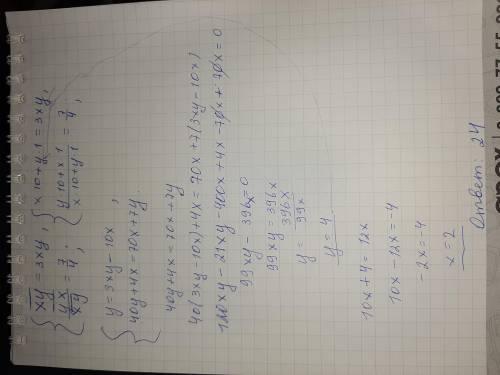 { x̅y̅ = 3xy, { x·10+y·1 = 3xy,
{ y̅x̅/x̅y̅ = 7/4; { (y·10+x·1)/(x·10+y·1) = 7/4;
{ y = 3xy - 10x ,
{ 40y+4x = 70x+7y.
40y+4x = 70x+7y
40(3xy-10x)+4x = 70x+7(3xy-10x)
120xy-21xy-400x+4x-70x+70x=0
99xy-396x=0
99xy=396x
y= 396x/99x
y=4
10x+4=12x
10x-12x=-4
-2x=-4
x=2
Ответ: 24